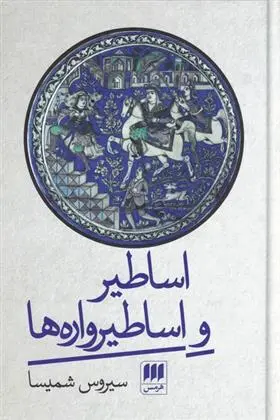 اساطیر
و اساطیرواره‌ها
سیروس شمیسا
هرمس